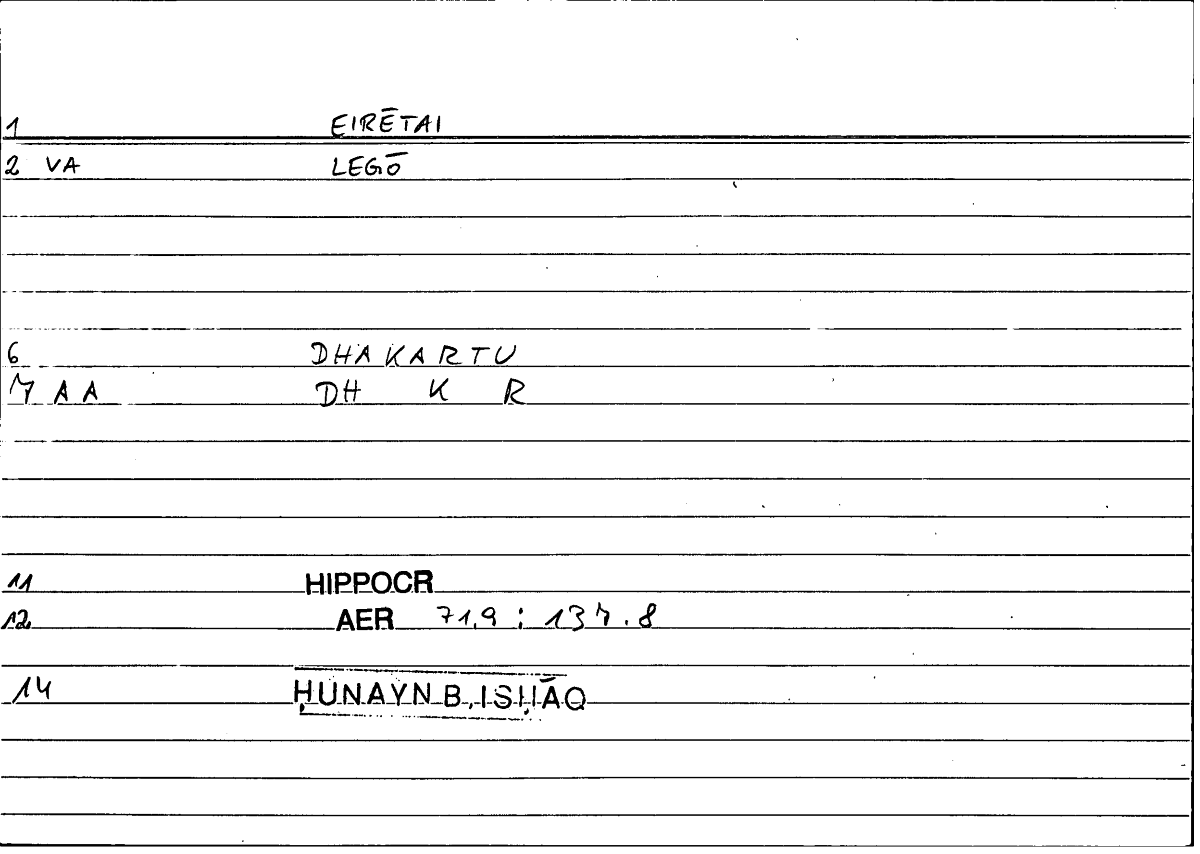 1 EIRĒTAI
2 VA LEGŌ
6 DHAKARTU
7 AA DH K R
11 HIPPOCR
12 AER 71,9 : 137.8
14 ḤUNAYN B. ISḤĀQ